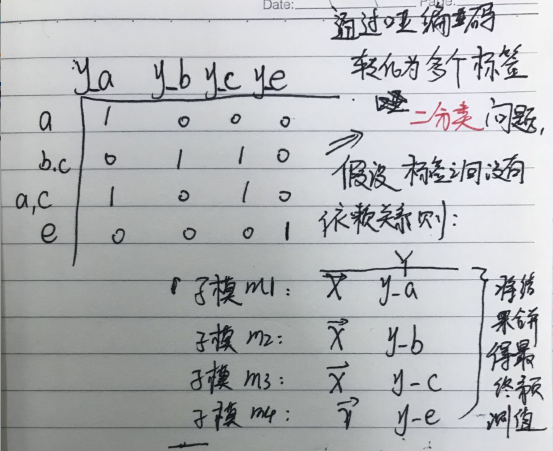 Date:
通过哑编码
转化为多个标签
二分类问题,
假设标签之间没有
依赖关系则:
y_a y_b y_c y_e
a 1 0 0 0
b.c 0 1 1 0
a,c 1 0 1 0
e 0 0 0 1
Y
子模m1: X y_a
子模m2: X y_b
子模m3: X y_c
子模m4: X y_e
将结果合併得最终预测值